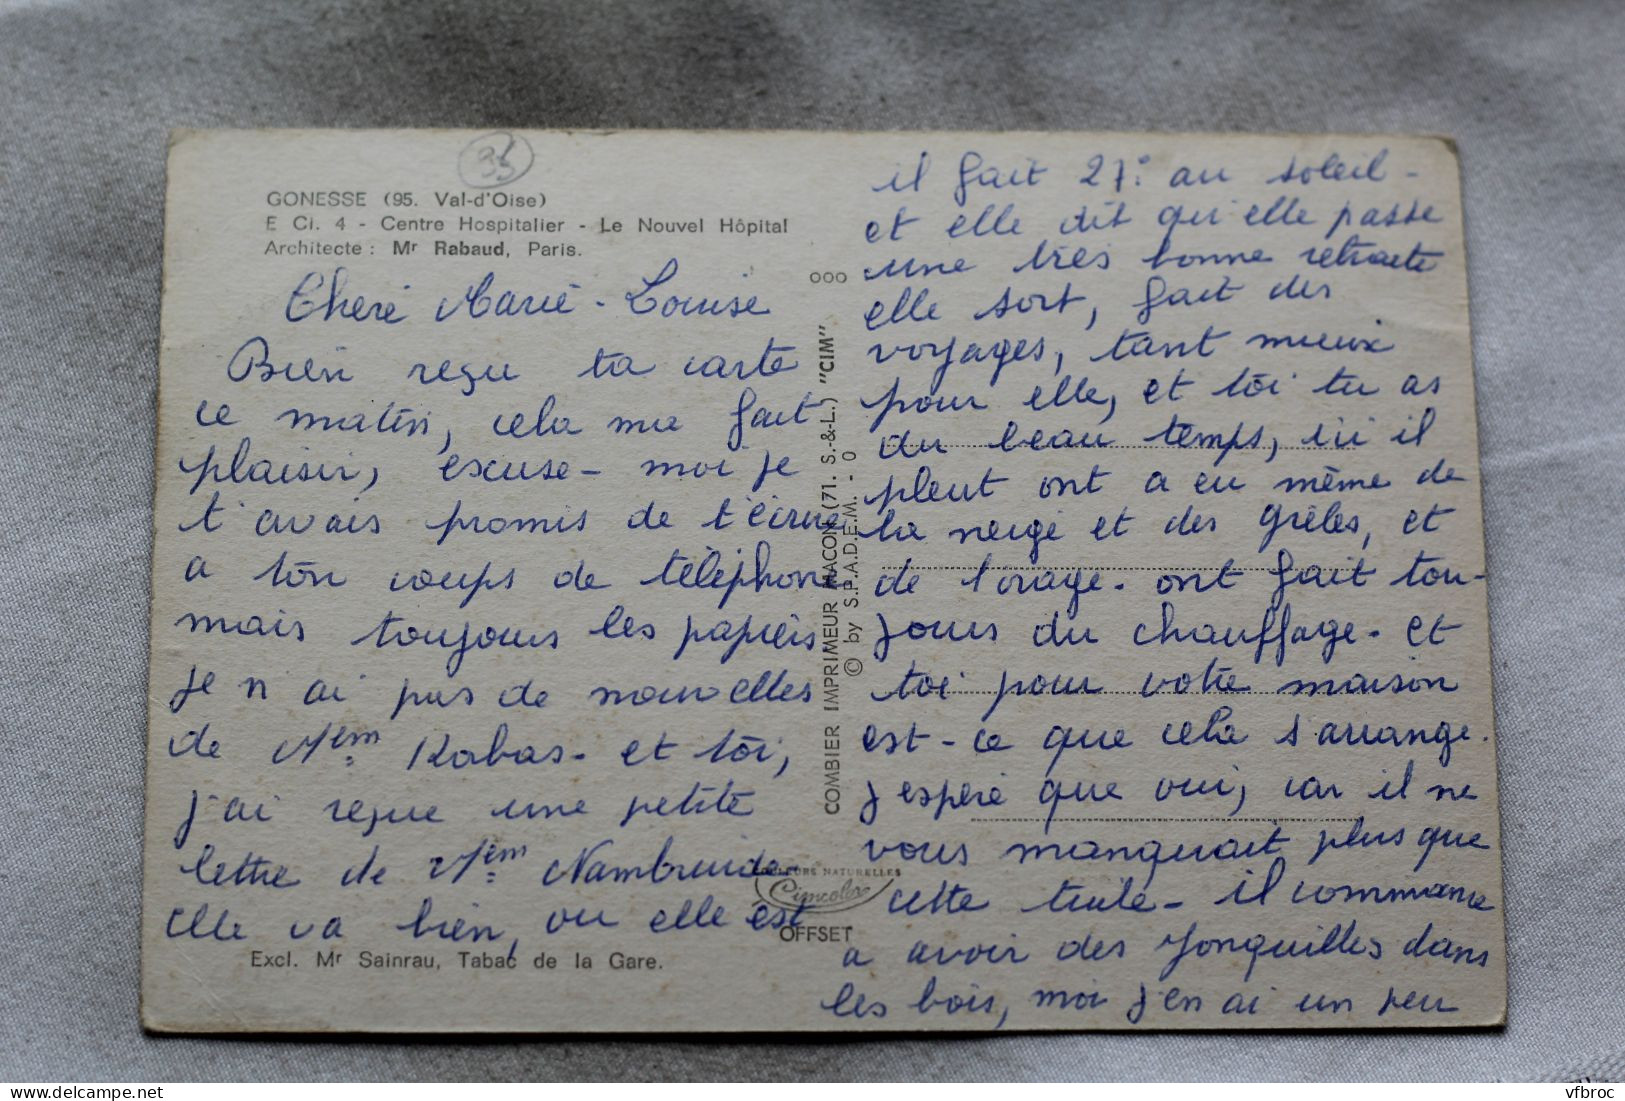 95
GONESSE (95. Val-d'Oise)
E Ci. 4 - Centre Hospitalier - Le Nouvel Hôpital
Architecte : Mr Rabaud, Paris.
Cheré Marie-Louise
Bien reçu ta carte
ce matin, cela ma fait
plaisir, excuse-moi je
t'avais promis de t'écrire
a ton coups de téléphone
mais toujours les papiers
je n ai pas de nouvelles
de Mem Kabas. et toi,
j'ai reçue une petite
lettre de Mem
elle va bien, ou elle est
Excl. Mr Sainrau, Tabac de la Gare.
ooo
COMBIER IMPRIMEUR MACON (71. S.-&-L.) "CIM"
© by S.P.A.D.E.M. - 0
COULEURS NATURELLES
Cimcolor
OFFSET
il fait 27° au soleil -
et elle dit qu'elle passe
une très bonne retraite
elle sort, fait des
voyages, tant mieux
pour elle, et toi tu as
du beau temps, ici il
pleut ont a eu même de
la neige et des grêles, et
de l'orage. ont fait tou-
jours du chauffage. et
toi pour votre maison
est-ce que cela s'arrange.
j'espère que oui, car il ne
vous manquait plus que
cette tuile - il commance
a avoir des Jonquilles dans
les bois, moi j'en ai un peu
vfbroc
delcampe.net